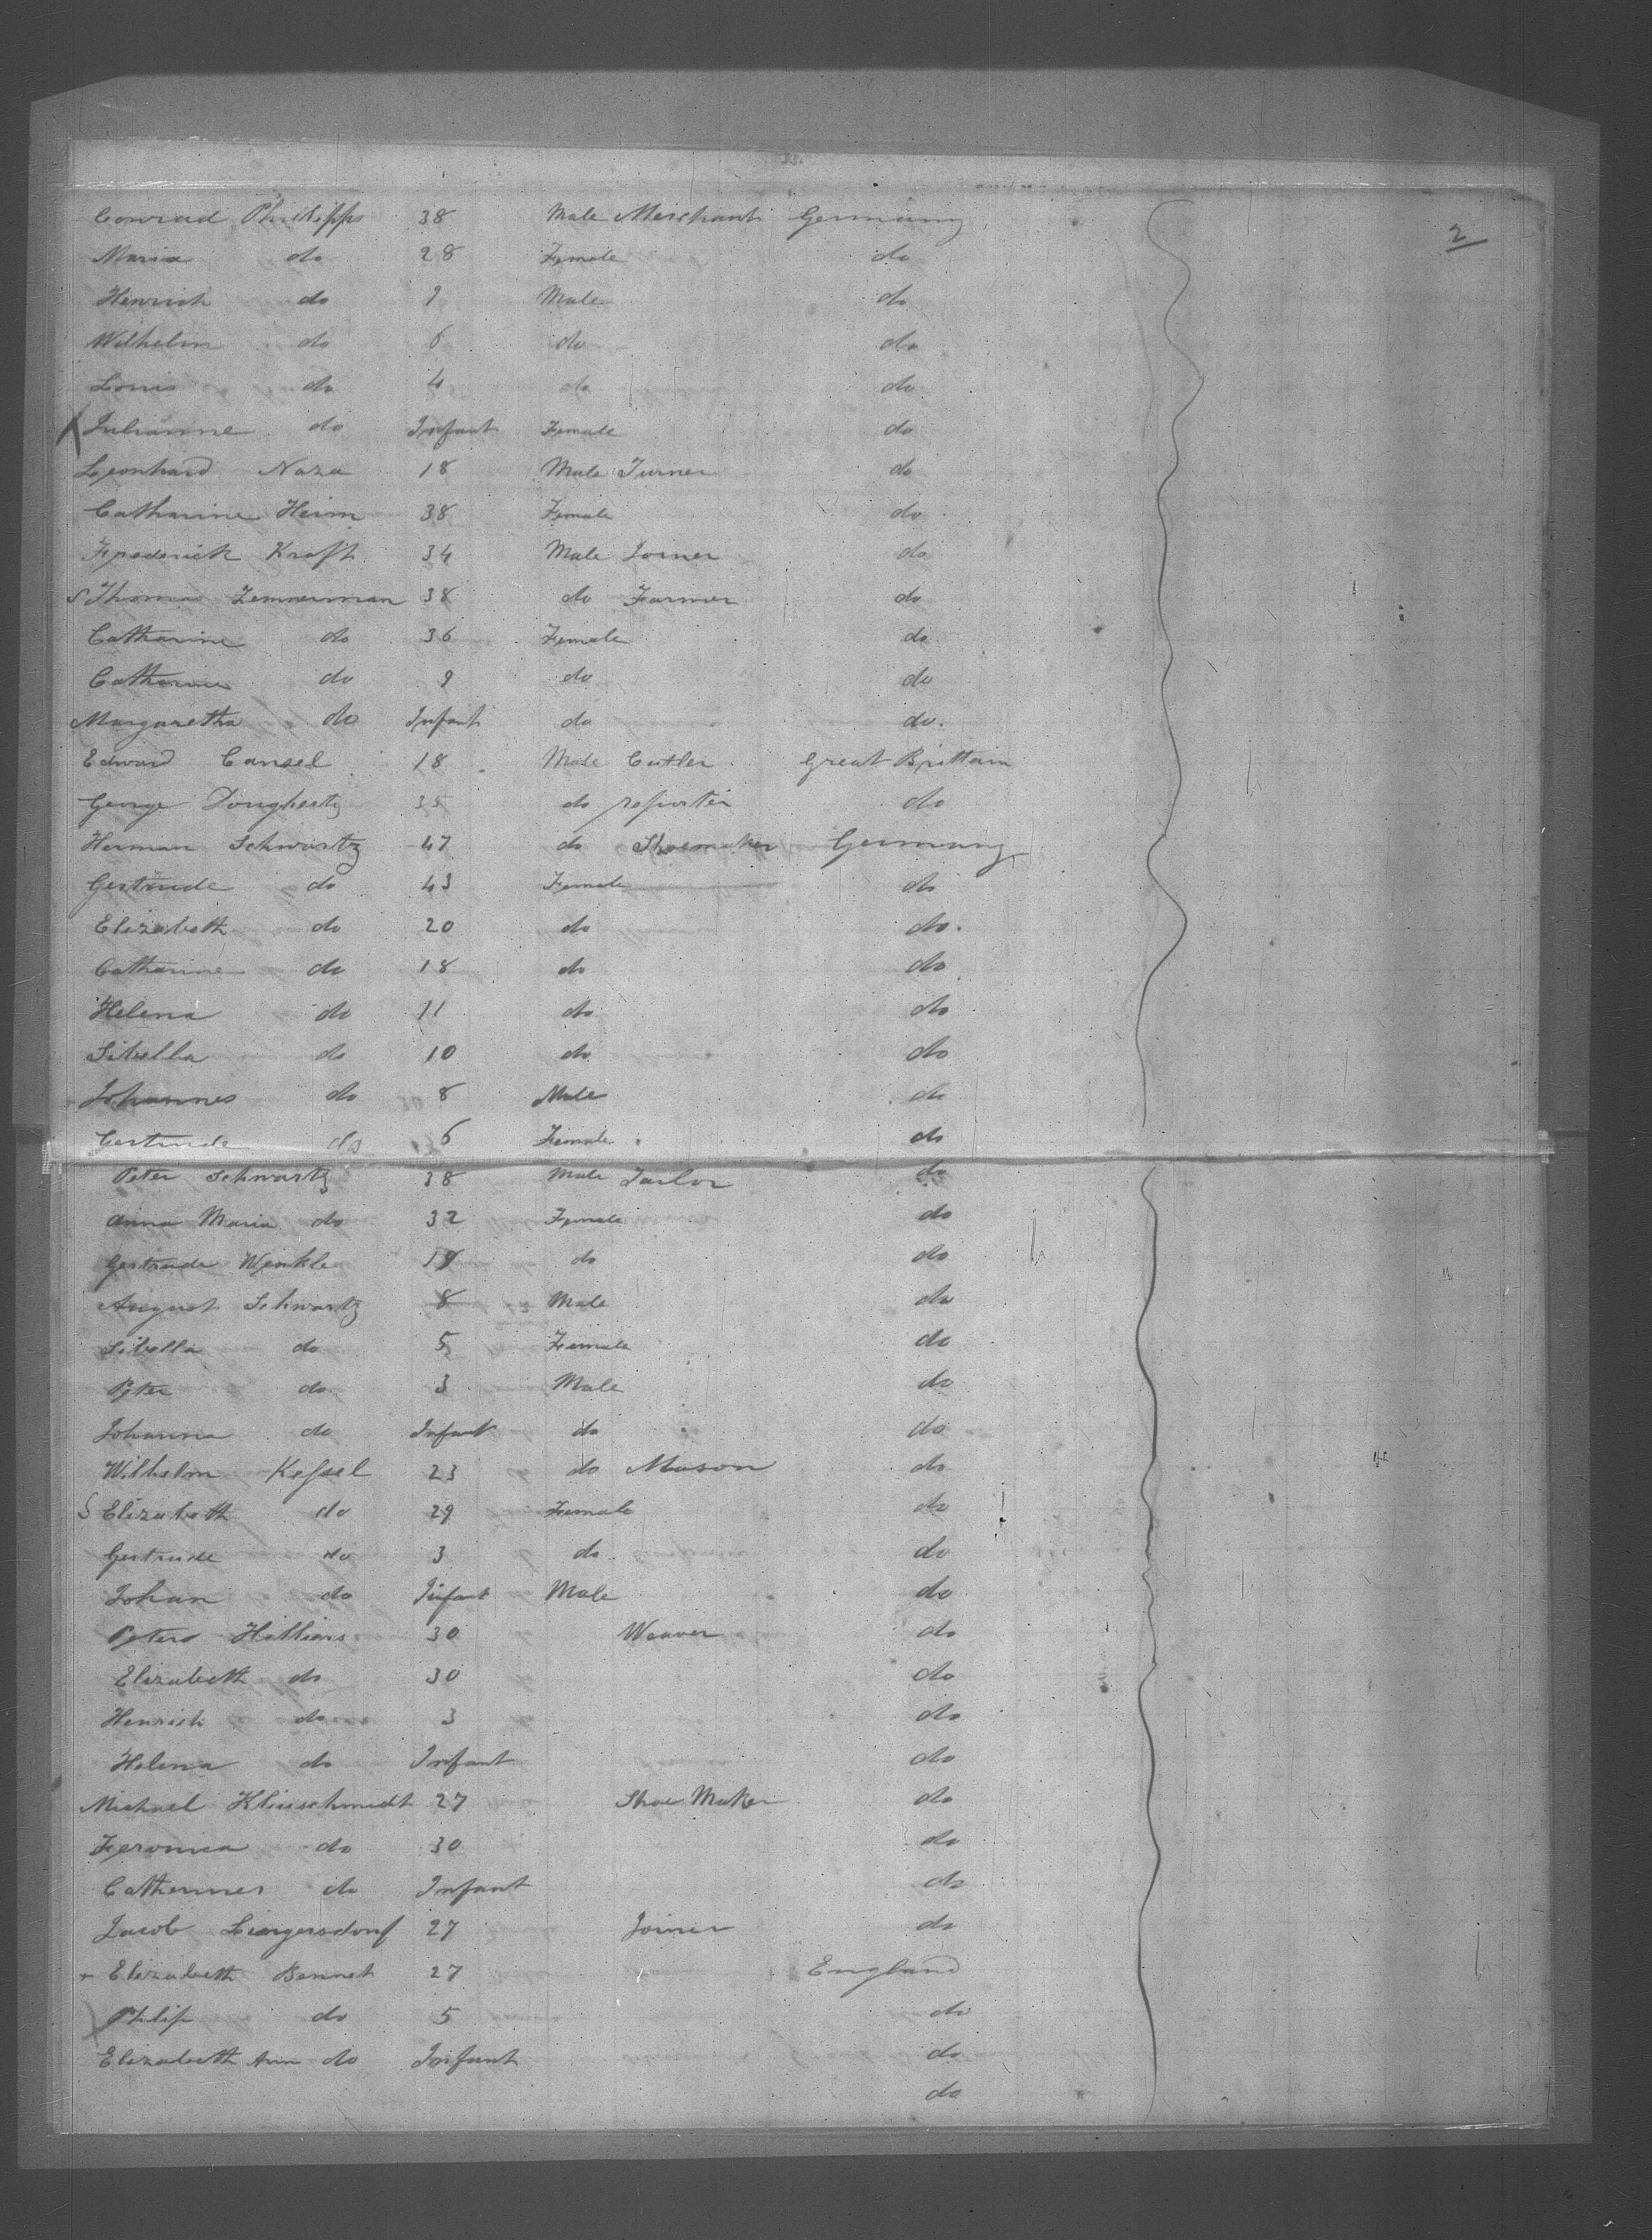 2
Conrad Philipps 38 Male Merchant Germany
Maria do 28 Female do
Henrich do 9 Male do
Wilhelm do 6 do do
Louis do 4 do do
Julianne do Infant Female do
Leonhard Naza 18 Male Turner do
Catharine Heim 38 Female do
Frederick Kraft 34 Male Joiner do
Thomas Zemmerman 38 do Farmer do
Catharine do 36 Female do
Catharine do 9 do do
Margaretha do Infant do do.
Edward Cansel 18 Male Cutler Great Brittain
George Dougherty 35 do reporter do
Herman Schwartz 47 do Shoemaker Germany
Gertrude do 43 Female do
Elizabeth do 20 do do.
Catharine do 18 do do
Helena do 11 do do
Sibella do 10 do do
Johannes do 8 Male do
Gertrude do 6 Female do
Peter Schwartz 38 Male Tailor do
Anna Maria do 32 Female do
Gertrude Wenkle 19 do do
August Schwartz 8 Male do
Sibella do 5 Female do
Peter do 3 Male do
Johanna do Infant do do
Wilhelm Kessel 23 do Mason do
Elizabeth do 29 Female do
Gertrude do 3 do do
Johan do Infant Male do
Peter 30 Weaver do
Elizabeth do 30 do
Henrich do 3 do
Helena do Infant do
Michael Klinschmidt 27 Shoe Maker do
Feronica do 30 do
Catherines do Infant do
Jacob Liengersdorf 27 Joiner do
Elizabeth Bennet 27 England
Philip do 5 do
Elizabeth Ann do Infant do
do